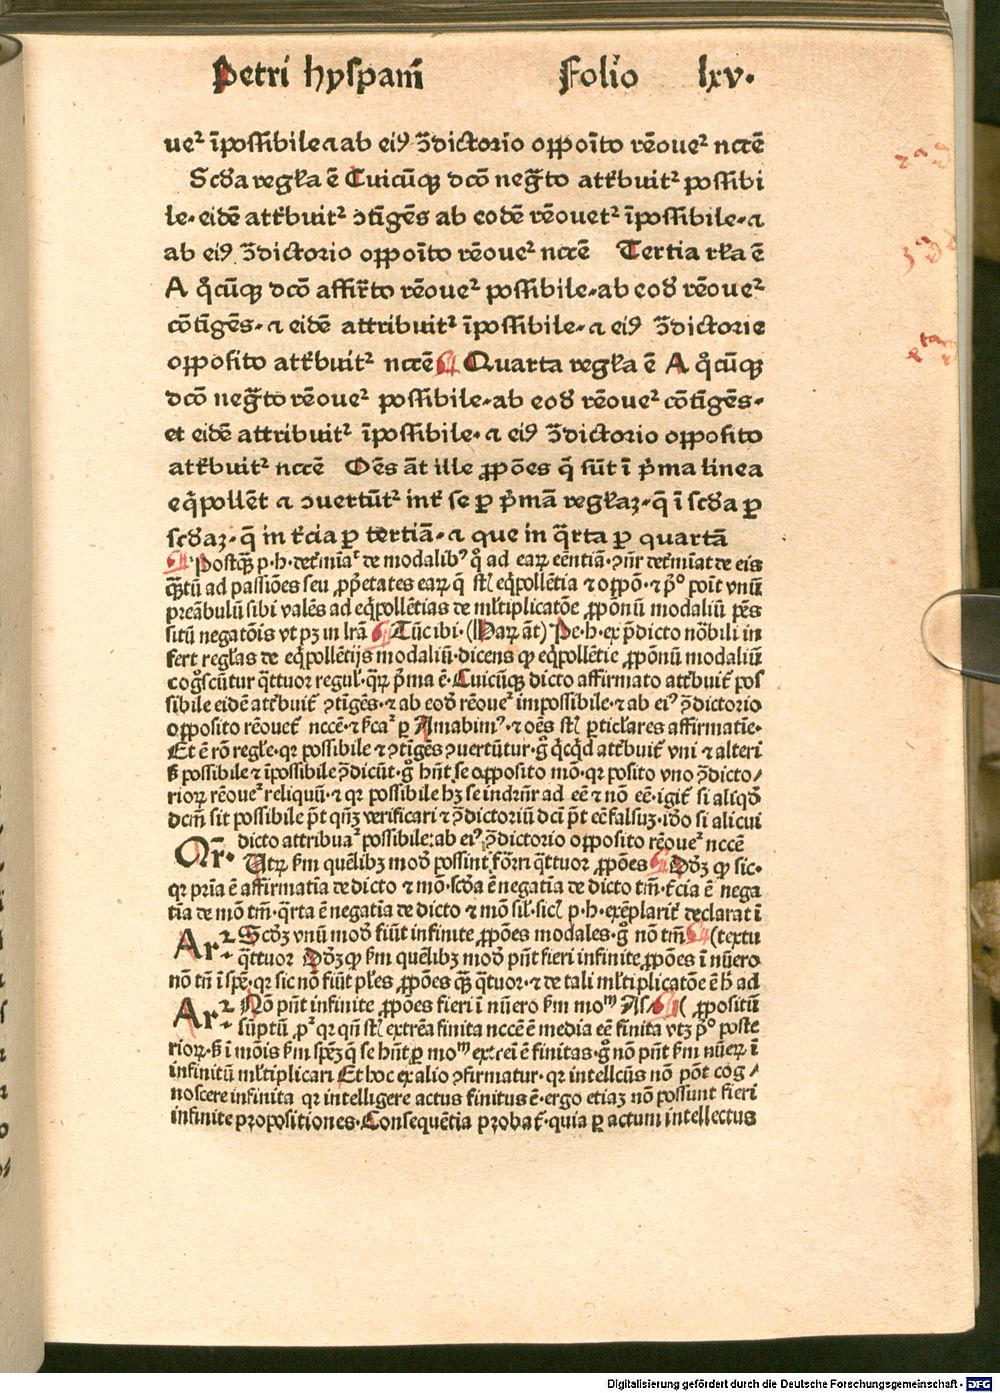 Petri hyspani Folio lxv.
ueꝛ īpoſſibile ⁊ ab ei⁹ ↄ̄dictorio oppoīto rēoueꝛ nccē
Scďa regľa ē Cuicūqꝫ dcō neg̃to atťbuitꝛ poſſibi
le. eidē atťbuitꝛ ↄtīgēs ab eodē rēouetꝛ īpoſſibile. ⁊
ab ei⁹ ↄ̄dictorio oppoīto rēoueꝛ nccē Tertia rľa ē
A q̊cūqꝫ dcō affir̃to rēoueꝛ poſſibile. ab eoď rēoueꝛ
cōtīgēs. ⁊ eidē attribuitꝛ īpoſſibile. ⁊ ei⁹ ↄ̄dictorie
oppoſito atťbuitꝛ nccē ¶ Quarta regľa ē A q̊cūqꝫ
dcō neg̃to rēoueꝛ poſſibile. ab eoď rēoueꝛ cōtīgēs.
et eidē attribuitꝛ īpoſſibile. ⁊ ei⁹ ↄ̄dictorio oppoſito
atťbuitꝛ nccē Oēs āt ille ꝓpōes q̄ ſūt ī p̄ma linea
eq̄pollēt ⁊ ↄuertūtꝛ inť ſe ꝑ p̄mā regľaꝫ. q̄ ī ſcďa ꝑ
ſcďaꝫ. q̄ in ťcia ꝑ tertiā. ⁊ que in q̄rta ꝑ quartā
¶ Poſtq̄ꝫ p. h. deťmīaꝛ de modalibꝰ q̊ ad eaꝝ eēntiā. ↄñr deťmīat de eis
q̄ꝫtū ad paſſiōes ſeu ꝓp̄etates eaꝝ q̄ ſťl eq̄pollētia ⁊ oppō. ⁊ pº poīt vnū
preābulū ſibi valēs ad eq̄pollētias de mľtiplicatōe ꝓpōnū modaliū pēs
ſitū negatōis vt pꝫ in lrā ¶ Tūc ibi. (Haꝝ āt) Pe. h. ex p̄dicto nōbili in
fert regľas de eq̄pollētijs modaliū. dicens ꝙ eq̄pollētie ꝓpōnū modaliū
cog̃ſcūtur q̄ttuor reguľ. q̄ꝝ p̄ma ē. Cuicūqꝫ dicto affirmato atťbuiť poſ
ſibile eidē atťbuiť ↄtīgēs. ⁊ ab eoď rēoueꝛ impoſſibile. ⁊ ab ei⁹ ↄ̄dictorio
oppoſito rēoueť nccē. ⁊ ꝑ Amabimꝰ. ⁊ oēs ſťl ꝑticľares affirmatīe.
Et ē rō regľe. qꝛ poſſibile ⁊ ↄtīgēs ↄuertūtur. g̊ q̇cq̇d atťbuiť vni ⁊ alteri
ꝟ poſſibile ⁊ īpoſſibile ↄ̄dicūt. g̊ hñt ſe oppoſito mō. qꝛ poſito vno ↄ̄dicto/
rioꝝ rēoueꝛ reliquū. ⁊ qꝛ poſſibile hꝫ ſe indrn̄r ad eē ⁊ nō eē. igiť ſi aliqď
dcm̄ ſit poſſibile p̄t qn̄qꝫ verificari ⁊ ↄ̄dictoriū dci p̄t eē falſuꝫ. iďo ſi alicui
dicto attribuaꝛ poſſibile: ab ei⁹ ↄ̄dictorio oppoſito rēoueꝛ nccē
Qr̄. Utꝝ ẜm quēlibꝫ moď poſſint fōrri q̄ttuor ꝓpōes ¶ Dďꝫ ꝙ ſic.
qꝛ pria ē affirmatīa de dicto ⁊ mō. ſcďa ē negatīa de dicto tm̄. ťcia ē nega
tīa de mō tm̄. q̄rta ē negatīa de dicto ⁊ mō ſiľ. ſicť p. h. exēplariť declarat ī
Arꝛ. Scďꝫ vnū moď fiūt infinite ꝓpōes modales. g̊ nō tm̄ ¶ (textu
q̄ttuor Dďꝫ ꝙ ẜm quēlibꝫ moď pn̄t fieri infinite ꝓpōes ī nūero
nō tm̄ ī ſpē. qꝛ ſic nō fiūt pľes ꝓpōes q̄ꝫ q̄tuor. ⁊ de tali mľtiplicatōe ē h̄ ad
Arꝛ. Nō pn̄t infinite ꝓpōes fieri ī nūero ẜm moᵐ Aſ/ ¶ ( ꝓpoſitū
ſūptū ꝓꝛ qꝛ qn̄ ſťl extrēa finita nccē ē media eē finita vtꝫ pº poſte
rioꝝ. ī mōis ẜm ſpēꝫ q̄ ſe hñt ꝑ moᵐ extrei ē finitas. g̊ nō pn̄t ẜm nūeꝝ ī
infinitū mľtiplicari Et hoc ex alio ↄfirmatur. qꝛ intellcūs nō pōt cog/
noſcere infinita qꝛ intelligere actus finitus ē. ergo etiaꝫ nō poſſunt fieri
infinite propoſitiones. Conſequētia probať. quia ꝑ actum intellectus
Digitalisierung gefördert durch die Deutsche Forschungsgemeinschaft - DFG